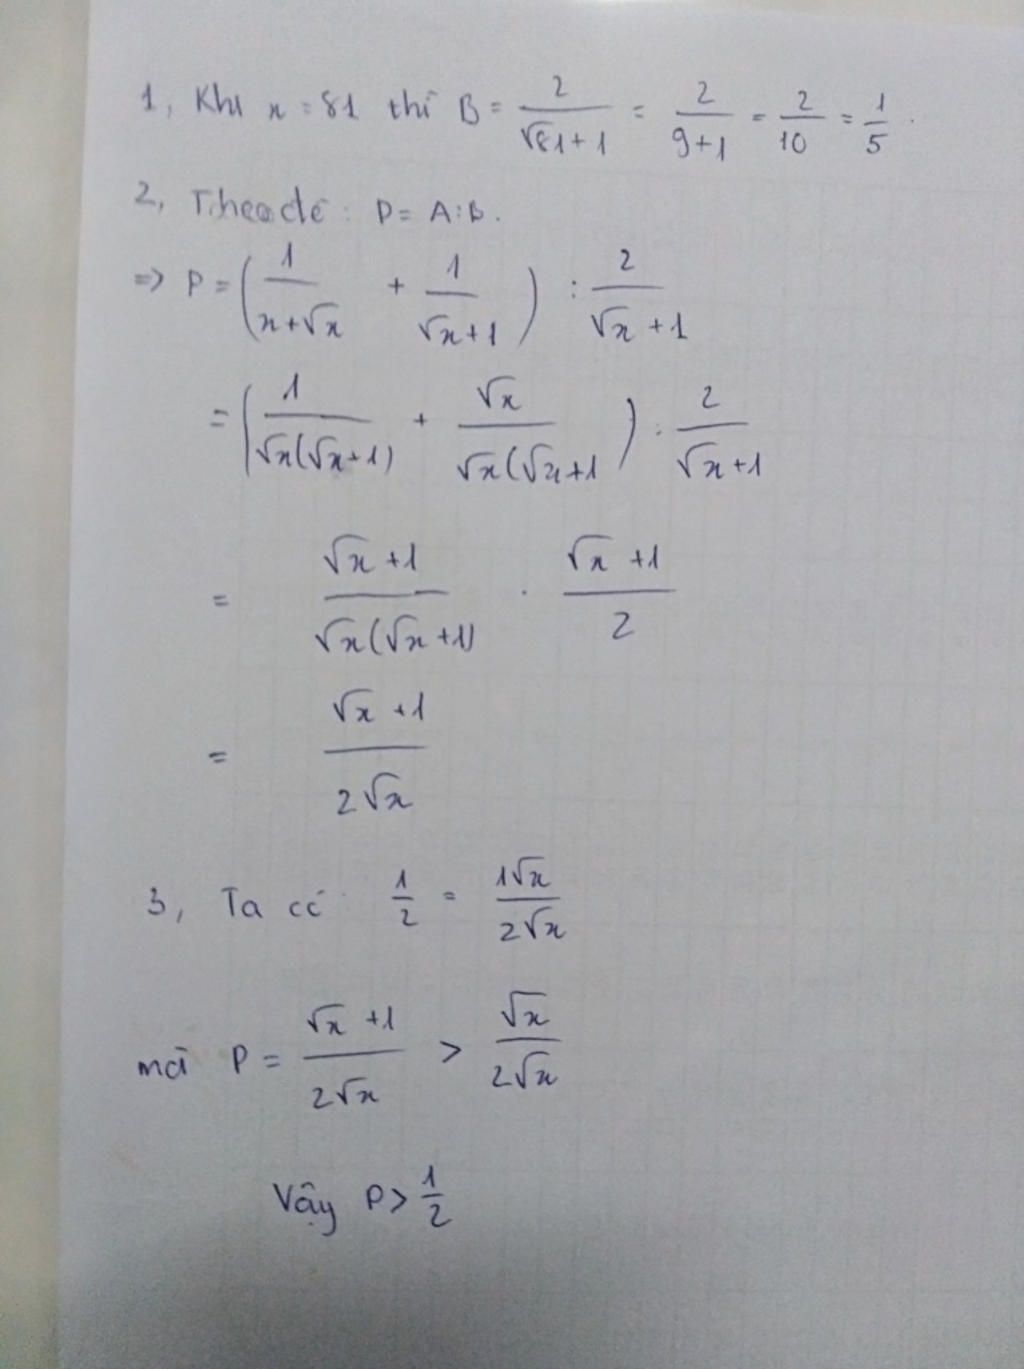 1, Khi x = 81 thì B = 2/(√81+1) = 2/(9+1) = 2/10 = 1/5.
2, Theo đề: P = A:B.
=> P = (1/(x+√x) + 1/(√x+1)) : 2/(√x+1)
= (1/(√x(√x+1)) + √x/(√x(√x+1) : 2/(√x+1)
= (√x+1)/(√x(√x+1)) . (√x+1)/2
= (√x+1)/(2√x)
3, Ta có 1/2 = 1√x/(2√x)
mà P = (√x+1)/(2√x) > √x/(2√x)
Vậy P > 1/2